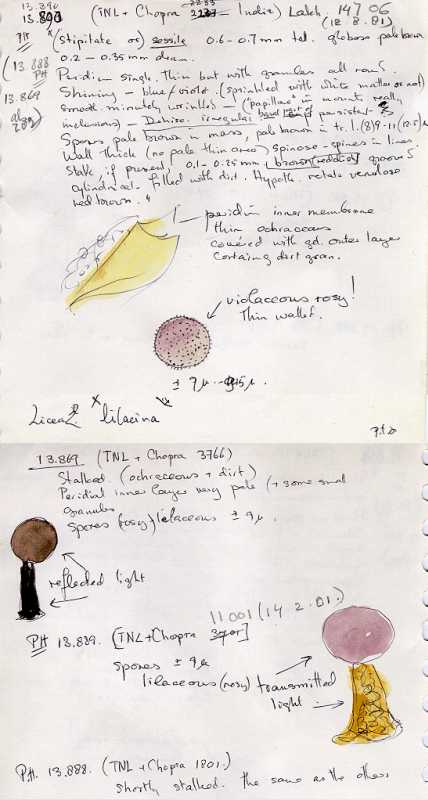 13.890
13.890 (TNL + Chopra India) Lakh. 147 06
(12.8.81)
PH (Stipitate or) sessile 0.6-0.7 mm tal. globose pale brown
(13.888 0.2-0.35 mm diam.
PH Peridium single. Thin but with granules all round.
13.869 Shinning - blue/violet. (sprinkled with white matter or not)
also smooth minutely wrinkled - ("papillae" in mount, really
inclusions) - Dehisc. irregular persistent
Spores pale brown in mass, pale brown in tr. l. (8) 9-11 (12.5) μ
Wall thick (no pale thin area) spinose - spines in lines.
Stalk, if present, 0.1-0.25 mm, brown (reddish)
cylindrical - filled with dirt. Hypoth. rotate venulose
red brown.
peridium inner membrane
thin ochraceous
covered with gd. outer layer
containg dirt gran.
violaceous rosy!
Thin walled.
± 9 μ
Licea? lilacina
13.869 (TNL + Chopra 3766)
Stalked. (ochraceous + dirt)
Peridial inner layer very pale (+ some small
granules
spores (rosy) lilaceous ± 9 μ.
reflected light
11001 (14.2.81.)
PH 13.889. (TNL + Chopra]
spores ± 9 μ
lilaceous (rosy) transmitted
light
PH. 13.888. (TNL + Chopra 1801.)
shortly stalked. the same as the others